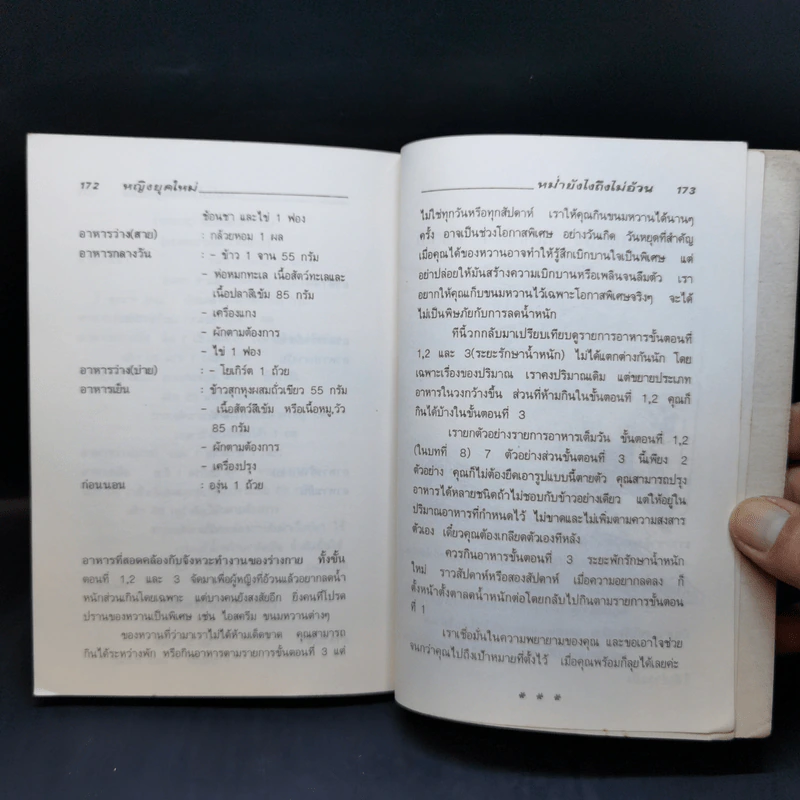 172 หญิงยุคใหม่
ช้อนชา และไข่ 1 ฟอง
อาหารว่าง(สาย) : กล้วยหอม 1 ผล
อาหารกลางวัน : - ข้าว 1 จาน 55 กรัม
- ห่อหมกทะเล เนื้อสัตว์ทะเลและ
เนื้อปลาสีเข้ม 85 กรัม
- เครื่องแกง
- ผักตามต้องการ
- ไข่ 1 ฟอง
อาหารว่าง(บ่าย) : - โยเกิร์ต 1 ถ้วย
อาหารเย็น : ข้าวสุกหุงผสมถั่วเขียว 55 กรัม
- เนื้อสัตว์สีเข้ม หรือเนื้อหมู,วัว
85 กรัม
- ผักตามต้องการ
- เครื่องปรุง
ก่อนนอน : องุ่น 1 ถ้วย
อาหารที่สอดคล้องกับจังหวะทำงานของร่างกาย ทั้งขั้น
ตอนที่ 1,2 และ 3 จัดมาเพื่อผู้หญิงที่อ้วนแล้วอยากลดน้ำ
หนักส่วนเกินโดยเฉพาะ แต่บางคนยังสงสัยอีก ยิ่งคนที่โปรด
ปรานของหวานเป็นพิเศษ เช่น ไอสครีม ขนมหวานต่างๆ
ของหวานที่ว่ามาเราไม่ได้ห้ามเด็ดขาด คุณสามารถ
กินได้ระหว่างพัก หรือกินอาหารตามรายการขั้นตอนที่ 3 แต่
หม่ำยังไงถึงไม่อ้วน 173
ไม่ใช่ทุกวันหรือทุกสัปดาห์ เราให้คุณกินขนมหวานได้นานๆ
ครั้ง อาจเป็นช่วงโอกาสพิเศษ อย่างวันเกิด วันหยุดที่สำคัญ
เมื่อคุณได้ของหวานอาจทำให้รู้สึกเบิกบานใจเป็นพิเศษ แต่
อย่าปล่อยให้มันสร้างความเบิกบานหรือเพลินจนลืมตัว เรา
อยากให้คุณเก็บขนมหวานไว้เฉพาะโอกาสพิเศษจริงๆ จะได้
ไม่เป็นพิษภัยกับการลดน้ำหนัก
ทีนี้วกกลับมาเปรียบเทียบดูรายการอาหารขั้นตอนที่
1,2 และ 3(ระยะรักษาน้ำหนัก) ไม่ได้แตกต่างกันนัก โดย
เฉพาะเรื่องของปริมาณ เราคงปริมาณเดิม แต่ขยายประเภท
อาหารในวงกว้างขึ้น ส่วนที่ห้ามกินในขั้นตอนที่ 1,2 คุณก็
กินได้บ้างในขั้นตอนที่ 3
เรายกตัวอย่างรายการอาหารเต็มวัน ขั้นตอนที่ 1,2
(ในบทที่ 8) 7 ตัวอย่างส่วนขั้นตอนที่ 3 นี้เพียง 2
ตัวอย่าง คุณก็ไม่ต้องยึดเอารูปแบบนี้ตายตัว คุณสามารถปรุง
อาหารได้หลายชนิดถ้าไม่ชอบกับข้าวอย่างเดียว แต่ให้อยู่ใน
ปริมาณอาหารที่กำหนดไว้ ไม่ขาดและไม่เพิ่มตามความสงสาร
ตัวเอง เดี๋ยวคุณต้องเกลียดตัวเองทีหลัง
ควรกินอาหารขั้นตอนที่ 3 ระยะพักรักษาน้ำหนัก
ใหม่ ราวสัปดาห์หรือสองสัปดาห์ เมื่อความอยากลดลง ก็
ตั้งหน้าตั้งตาลดน้ำหนักต่อโดยกลับไปกินตามรายการขั้นตอน
ที่ 1
เราเชื่อมั่นในความพยายามของคุณ และขอเอาใจช่วย
จนกว่าคุณไปถึงเป้าหมายที่ตั้งไว้ เมื่อคุณพร้อมก็ลุยได้เลยค่ะ
* * *